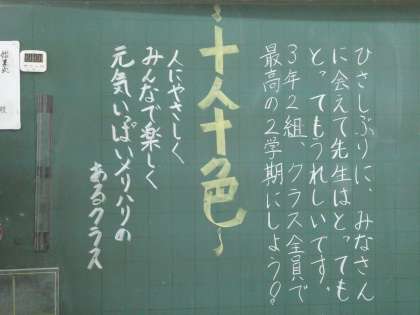 ひさしぶりに、みなさん
に会えて先生はとっても
とってもうれしいです。
3年2組、クラス全員で
最高の2学期にしよう!
~十人十色~
人にやさしく
みんなで楽しく
元気いっぱいメリハリの
あるクラス